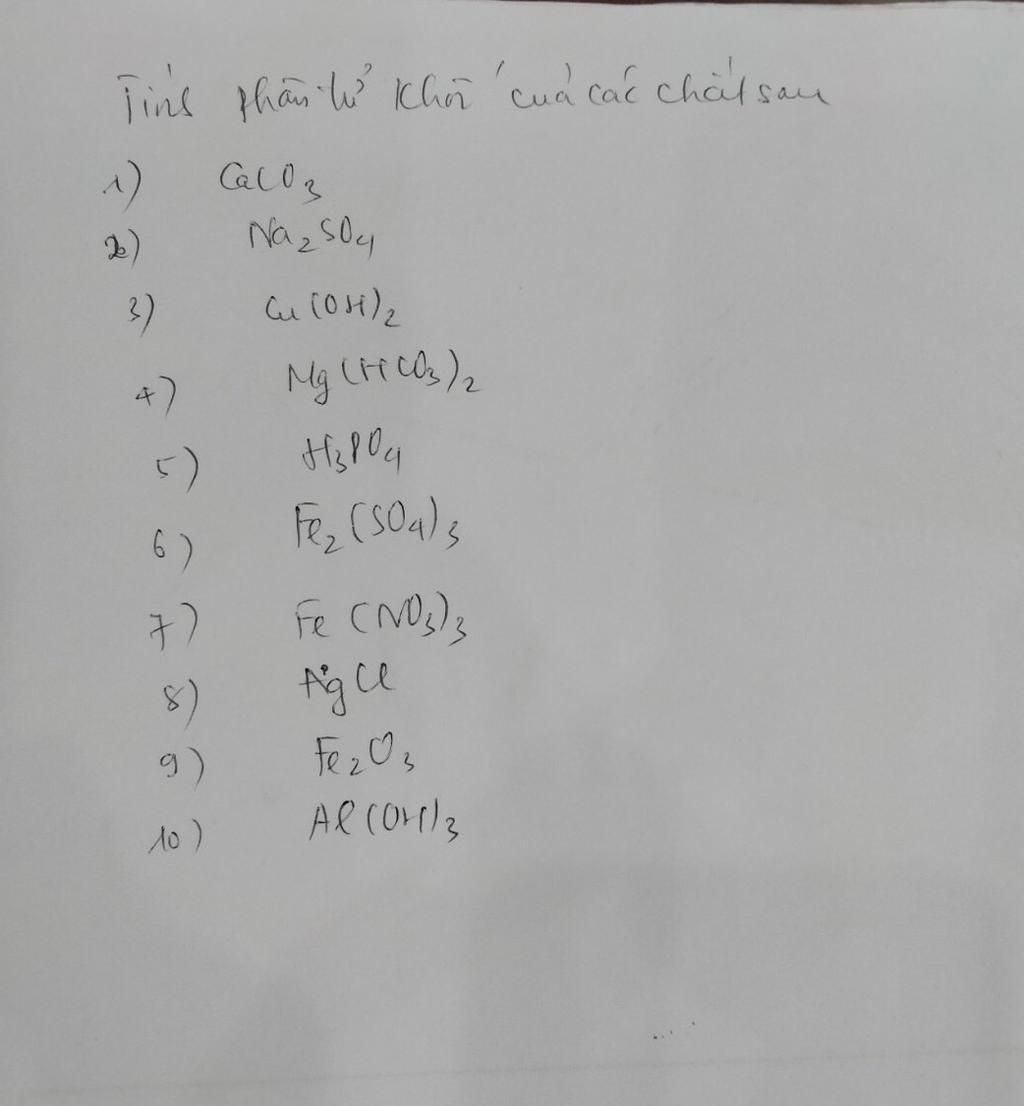 Tính phân tử khối của các chất sau
1) CaCO3
2) Na2SO4
3) Cu(OH)2
4) Mg(HCO3)2
5) H3PO4
6) Fe2(SO4)3
7) Fe(NO3)3
8) AgCl
9) Fe2O3
10) Al(OH)3